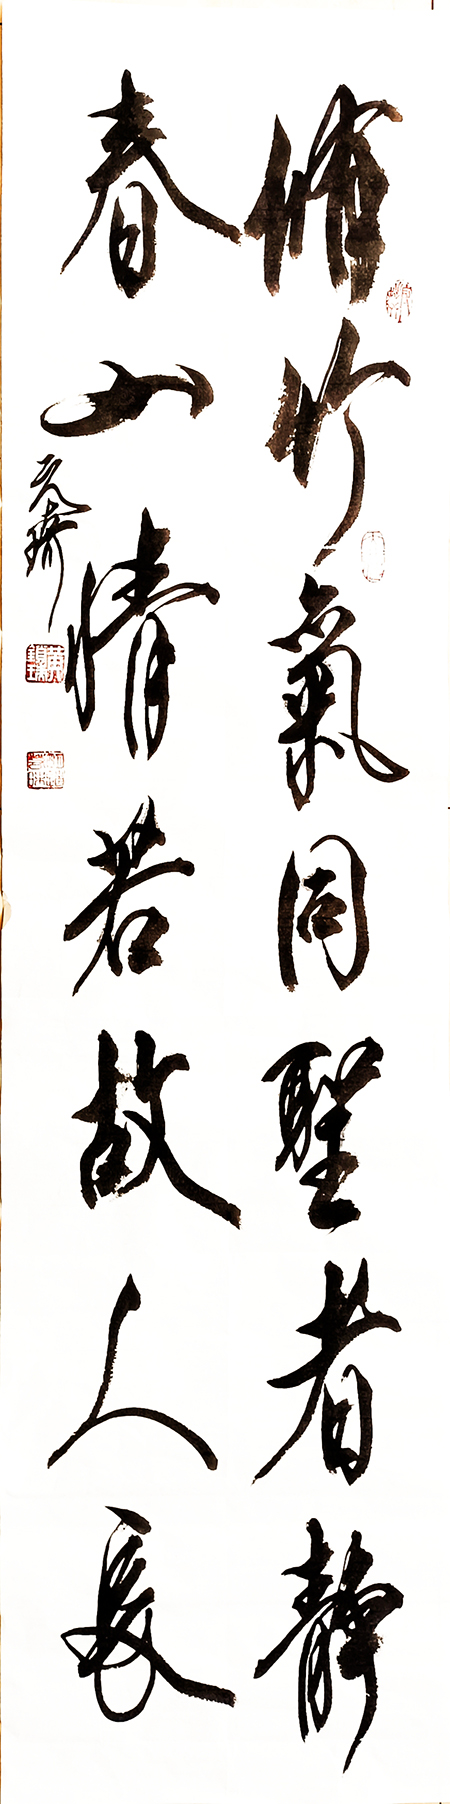 脩竹氣同聖者靜
春山情若故人長